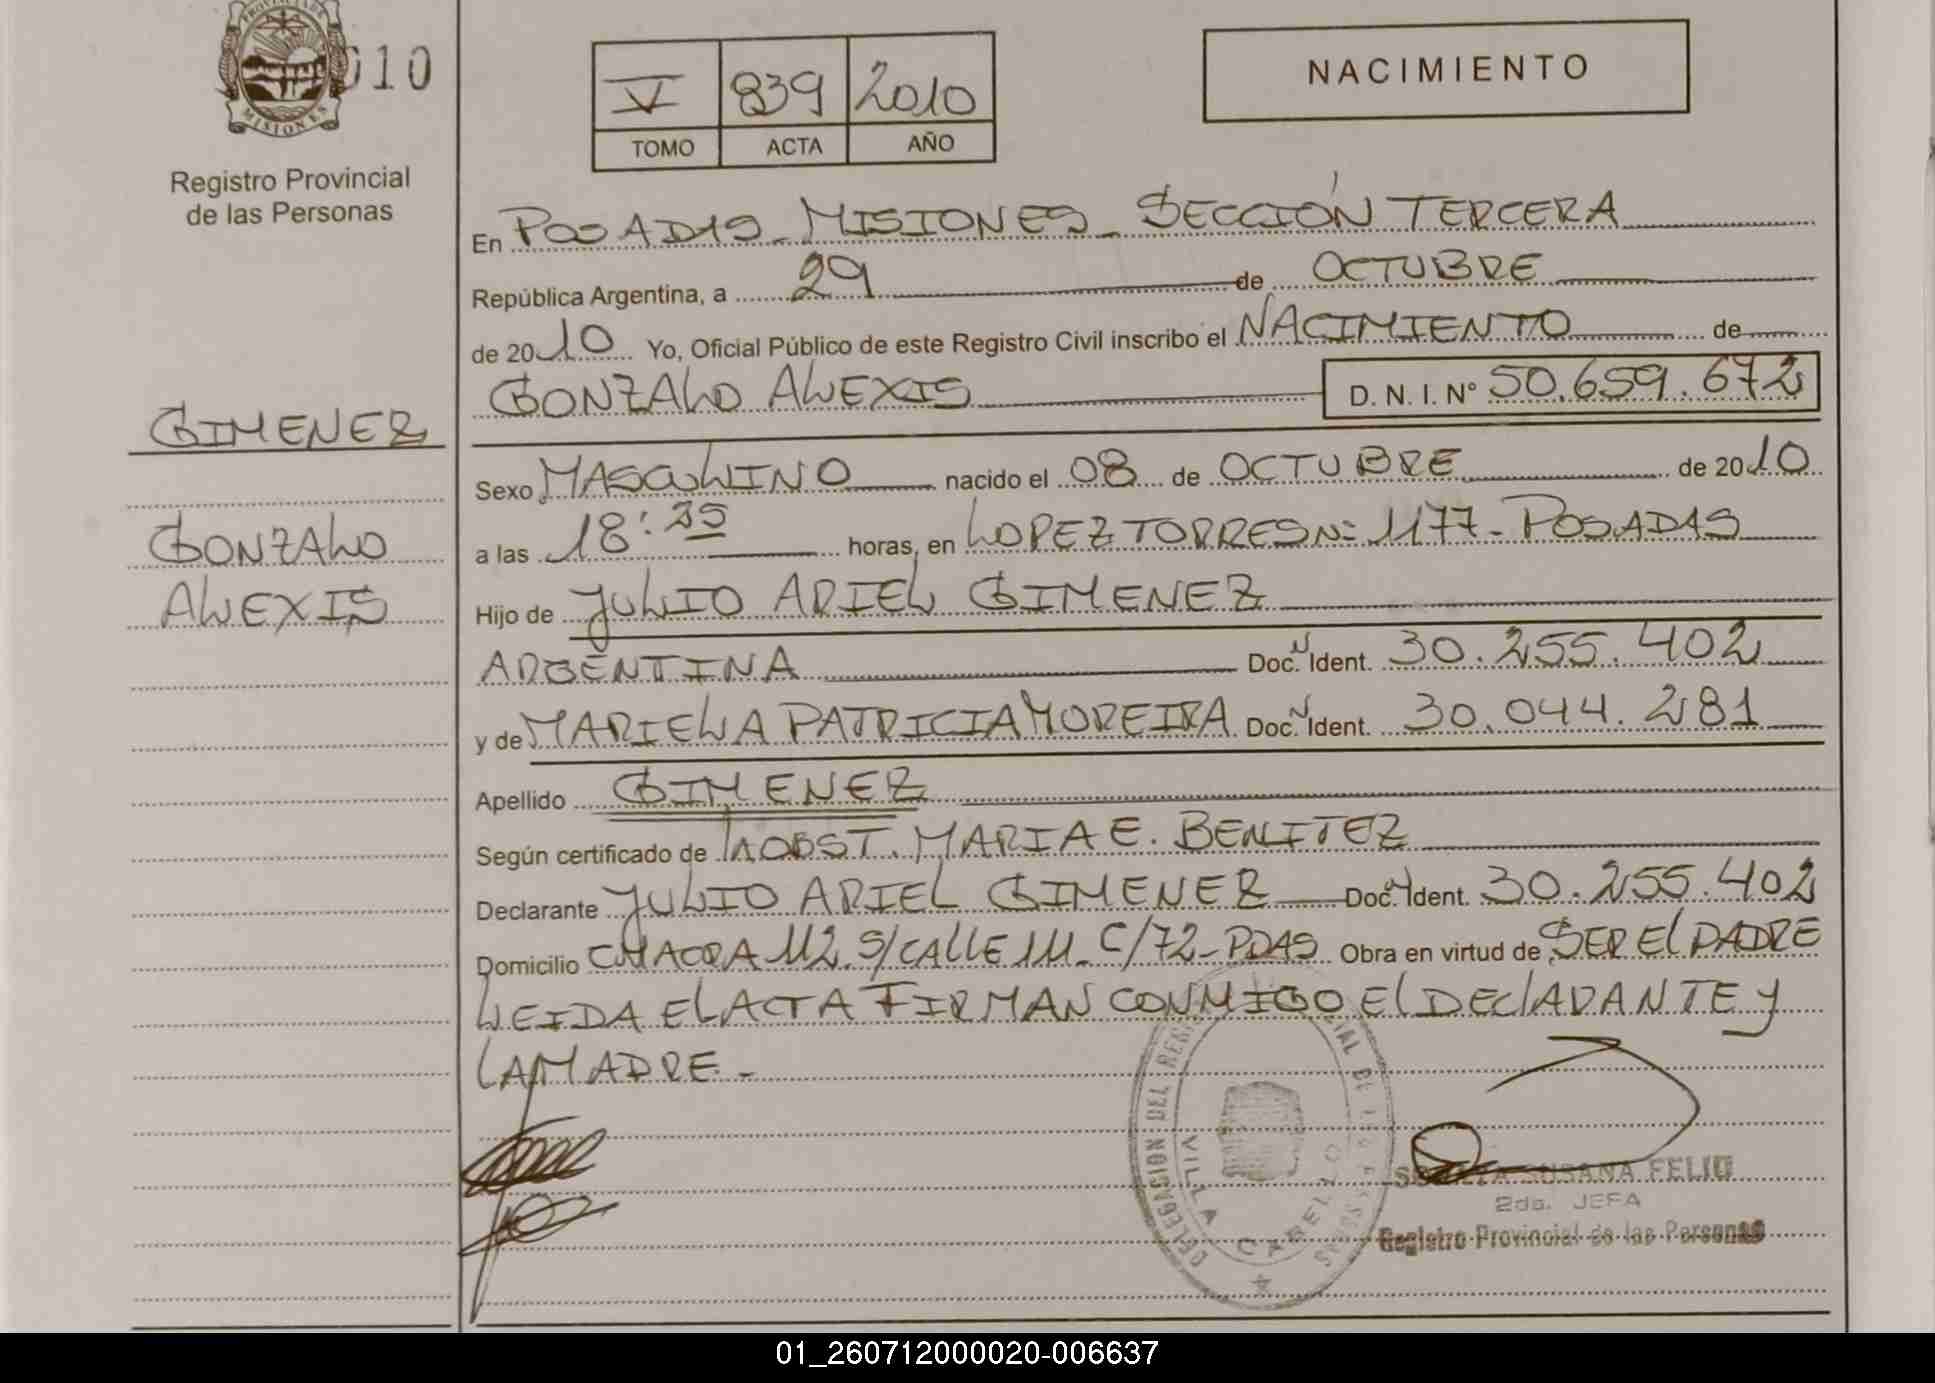 PROVINCIA DE
MISIONES
010
Registro Provincial
de las Personas
GIMENEZ
GONZALO
ALEXIS
V 839 2010
TOMO ACTA AÑO
NACIMIENTO
En POSADAS - MISIONES - SECCIÓN TERCERA
República Argentina, a 29 de OCTUBRE
de 2010 Yo, Oficial Público de este Registro Civil inscribo el NACIMIENTO de
GONZALO ALEXIS D. N. I. N° 50.659.672
Sexo MASCULINO nacido el 08 de OCTUBRE de 2010
a las 18:25 horas, en LOPEZ TORRES Nº 1177 - POSADAS
Hijo de JULIO ARIEL GIMENEZ
ARGENTINA Doc. N Ident. 30.255.402
y de MARIELA PATRICIA MOREIRA Doc. N Ident. 30.044.281
Apellido GIMENEZ
Según certificado de LA OBST. MARIA E. BENITEZ
Declarante JULIO ARIEL GIMENEZ Doc. N Ident. 30.255.402
Domicilio CHACRA 112 S/CALLE 111 - C/72 - PDAS Obra en virtud de SER EL PADRE
LEIDA EL ACTA FIRMAN CONMIGO EL DECLARANTE Y
LA MADRE -
DELEGACION DEL
VILLA CABELLO
SUSANA FELIU
2da. JEFA
Registro Provincial de las Personas
01_260712000020-006637